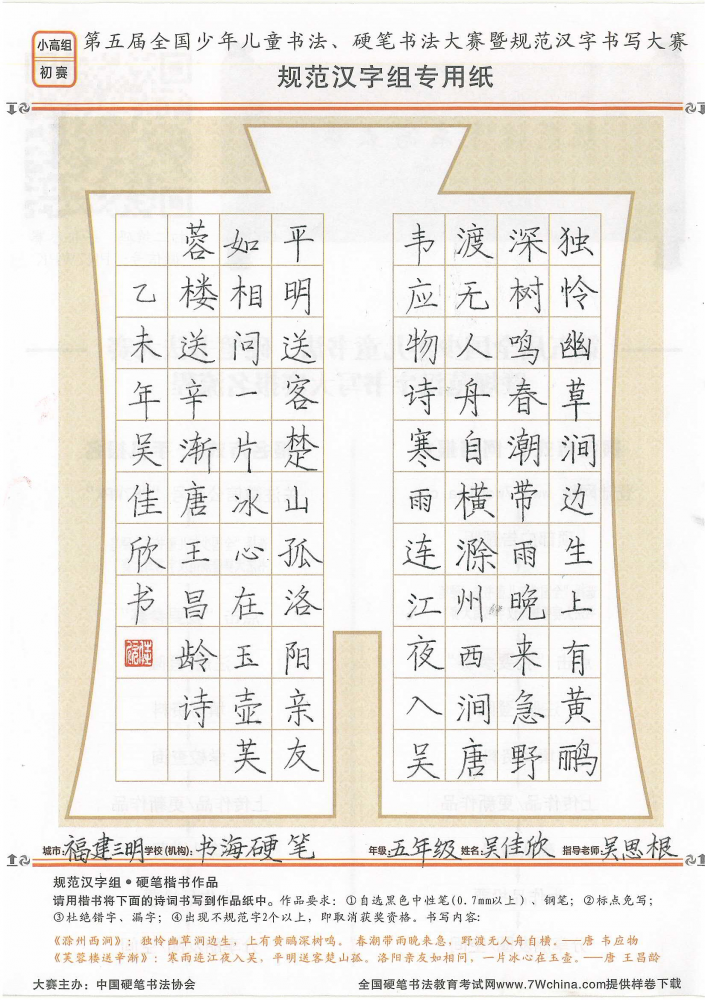 小高组
初赛
第五届全国少年儿童书法、硬笔书法大赛暨规范汉字书写大赛
规范汉字组专用纸
独怜幽草涧边生上有黄鹂
深树鸣春潮带雨晚来急野
渡无人舟自横滁州西涧唐
韦应物诗寒雨连江夜入吴
平明送客楚山孤洛阳亲友
如相问一片冰心在玉壶芙
蓉楼送辛渐唐王昌龄诗
乙未年吴佳欣书
城市:福建三明学校(机构):书海硬笔 年级:五年级 姓名:吴佳欣 指导老师:吴思根
规范汉字组●硬笔楷书作品
请用楷书将下面的诗词书写到作品纸中。作品要求：①自选黑色中性笔(0.7mm以上)、钢笔；②标点免写；
③杜绝错字、漏字；④出现不规范字2个以上，即取消获奖资格。书写内容：
《滁州西涧》：独怜幽草涧边生，上有黄鹂深树鸣。春潮带雨晚来急，野渡无人舟自横。——唐 韦应物
《芙蓉楼送辛渐》：寒雨连江夜入吴，平明送客楚山孤。洛阳亲友如相问，一片冰心在玉壶。——唐 王昌龄
大赛主办：中国硬笔书法协会 全国硬笔书法教育考试网www.7Wchina.com提供样卷下载